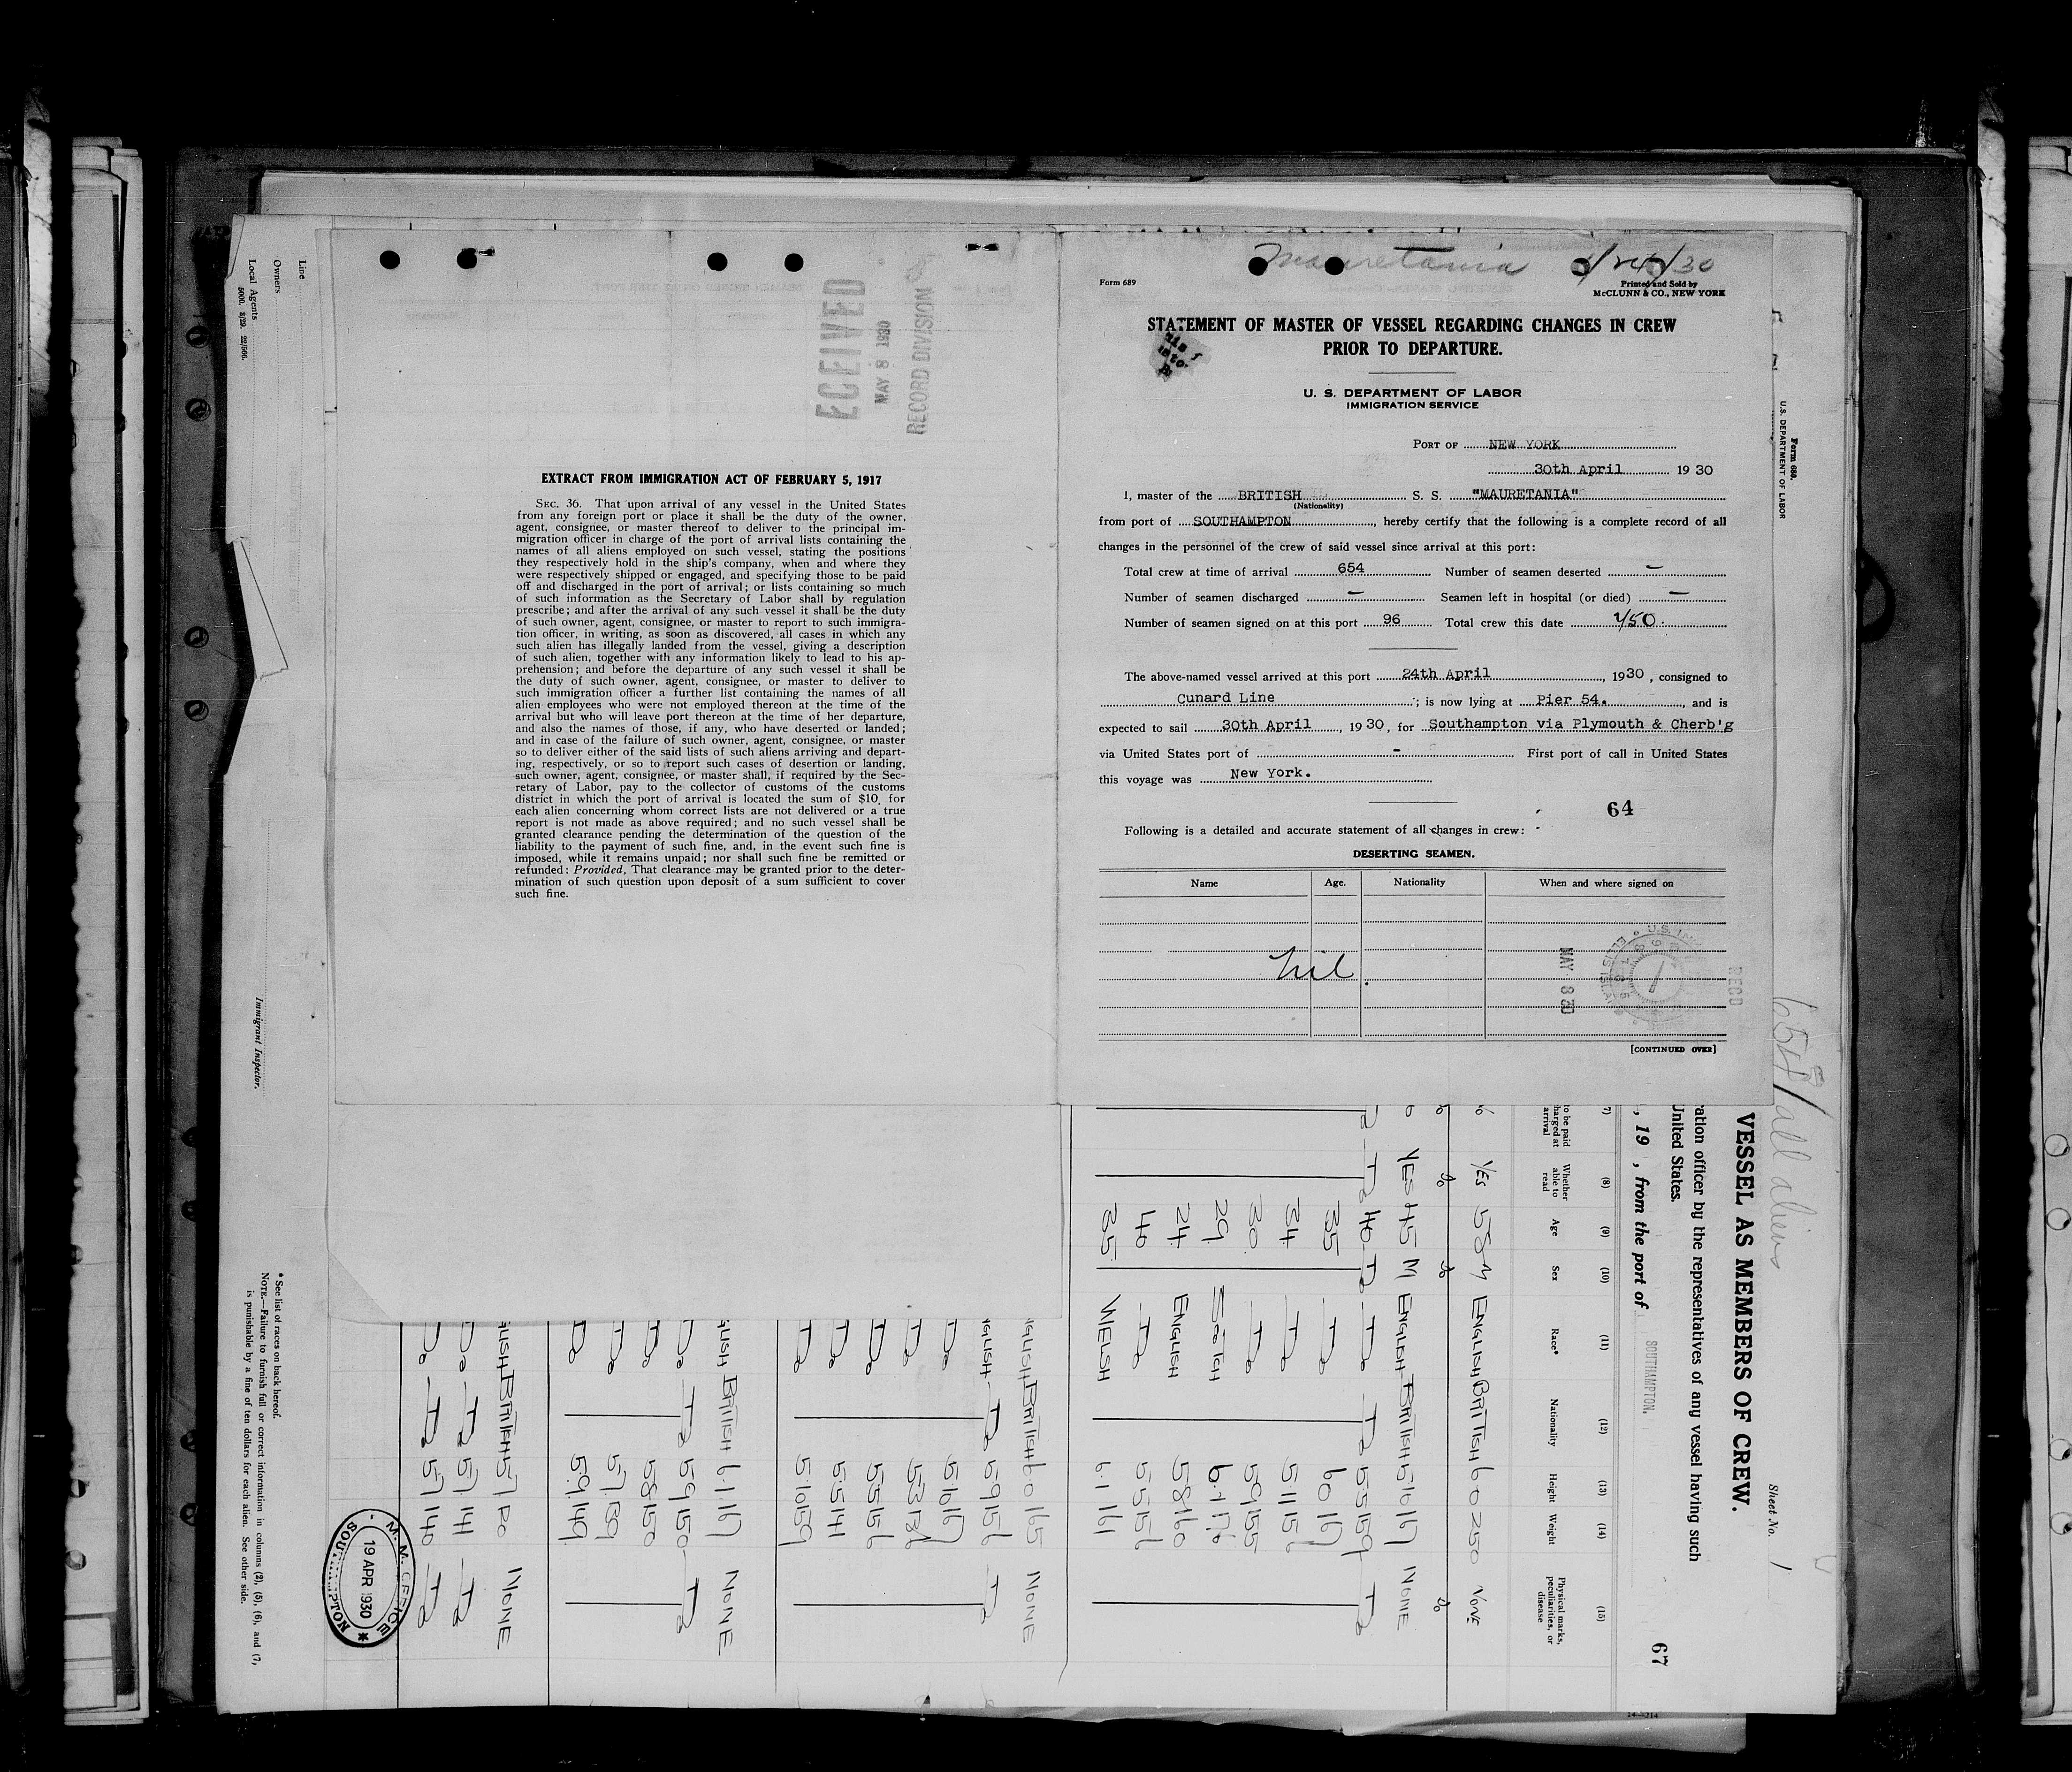 Mauretania 4/24/30
Form 689
Printed and Sold by
McCLUNN & CO., NEW YORK
STATEMENT OF MASTER OF VESSEL REGARDING CHANGES IN CREW
PRIOR TO DEPARTURE.
U. S. DEPARTMENT OF LABOR
IMMIGRATION SERVICE
PORT OF NEW YORK
30th April 19 30
I, master of the BRITISH S. S. "MAURETANIA"
(Nationality)
from port of SOUTHAMPTON, hereby certify that the following is a complete record of all
changes in the personnel of the crew of said vessel since arrival at this port:
Total crew at time of arrival 654 Number of seamen deserted —
Number of seamen discharged — Seamen left in hospital (or died) —
Number of seamen signed on at this port 96 Total crew this date 750.
The above-named vessel arrived at this port 24th April, 1930, consigned to
Cunard Line; is now lying at Pier 54., and is
expected to sail 30th April, 1930, for Southampton via Plymouth & Cherb'g
via United States port of - First port of call in United States
this voyage was New York.
64
Following is a detailed and accurate statement of all changes in crew:
DESERTING SEAMEN.
Name Age. Nationality When and where signed on
nil
MAY 8 30
RECD
[CONTINUED OVER]
RECEIVED
MAY 8 1930
RECORD DIVISION
EXTRACT FROM IMMIGRATION ACT OF FEBRUARY 5, 1917
SEC. 36. That upon arrival of any vessel in the United States
from any foreign port or place it shall be the duty of the owner,
agent, consignee, or master thereof to deliver to the principal im-
migration officer in charge of the port of arrival lists containing the
names of all aliens employed on such vessel, stating the positions
they respectively hold in the ship's company, when and where they
were respectively shipped or engaged, and specifying those to be paid
off and discharged in the port of arrival; or lists containing so much
of such information as the Secretary of Labor shall by regulation
prescribe; and after the arrival of any such vessel it shall be the duty
of such owner, agent, consignee, or master to report to such immigra-
tion officer, in writing, as soon as discovered, all cases in which any
such alien has illegally landed from the vessel, giving a description
of such alien, together with any information likely to lead to his ap-
prehension; and before the departure of any such vessel it shall be
the duty of such owner, agent, consignee, or master to deliver to
such immigration officer a further list containing the names of all
alien employees who were not employed thereon at the time of the
arrival but who will leave port thereon at the time of her departure,
and also the names of those, if any, who have deserted or landed;
and in case of the failure of such owner, agent, consignee, or master
so to deliver either of the said lists of such aliens arriving and depart-
ing, respectively, or so to report such cases of desertion or landing,
such owner, agent, consignee, or master shall, if required by the Sec-
retary of Labor, pay to the collector of customs of the customs
district in which the port of arrival is located the sum of $10 for
each alien concerning whom correct lists are not delivered or a true
report is not made as above required; and no such vessel shall be
granted clearance pending the determination of the question of the
liability to the payment of such fine, and, in the event such fine is
imposed, while it remains unpaid; nor shall such fine be remitted or
refunded: Provided, That clearance may be granted prior to the deter-
mination of such question upon deposit of a sum sufficient to cover
such fine.
Form 689.
U.S. DEPARTMENT OF LABOR
all aliens
Sheet No. 1
VESSEL AS MEMBERS OF CREW.
ration officer by the representatives of any vessel having such
United States.
, 19 , from the port of SOUTHAMPTON.
67
(8) (9) (10) (11) (12) (13) (14) (15)
Whether able to read Age Sex Race* Nationality Height Weight Physical marks, peculiarities, or disease
YES 58 M ENGLISH BRITISH 6 0 250 NONE
YES 45 M ENGLISH BRITISH 5 10 167 NONE
Do 40 Do Do Do 5 5 159 Do
35 Do 6 0 167
34 Do 5 11 156
30 Do 5 9 155
29 SCOTCH 6 1 176
24 ENGLISH 5 8 160
40 Do 5 5 156
35 WELSH 6 1 161
GLISH BRITISH 6 0 165 NONE
GLISH Do 5 9 156 Do
GLISH BRITISH 6 1 167 NONE
Do Do 5 9 150 Do
Do 5 8 150
Do 5 9 149
GLISH BRITISH 5 7 NONE
Do Do 5 7 141 Do
Do Do 5 7 140 Do
M.M. OFFICE
19 APR 1930
Line
Owners
Local Agents
5000. 3/29. 22/566.
Immigrant Inspector.
* See list of races on back hereof.
NOTE.—Failure to furnish full or correct information in columns (2), (5), (6), and (7,
is punishable by a fine of ten dollars for each alien. See other side.